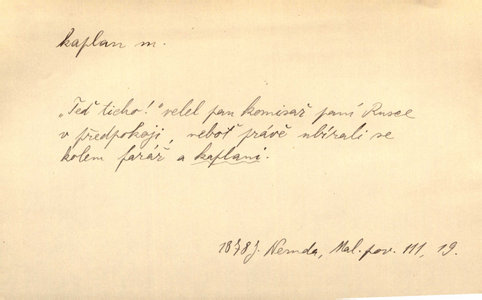 kaplan m.
„Teď ticho!“ velel pan komisař paní Rusce
v předpokoji, neboť právě ubírali se
kolem farář a kaplani.
1878 J. Neruda, Mal. pov. III, 19.